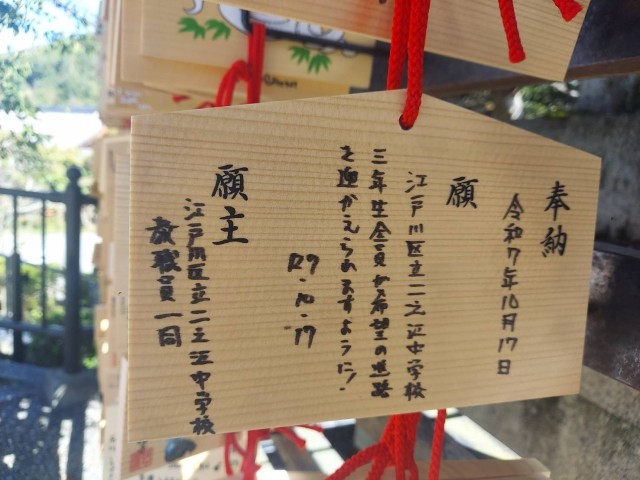 奉納
令和7年10月17日
願
江戸川区立二之江中学校
三年生全員が希望の進路
を迎かえられますように!
R7.10.17
願主
江戸川区立二之江中学校
教職員一同